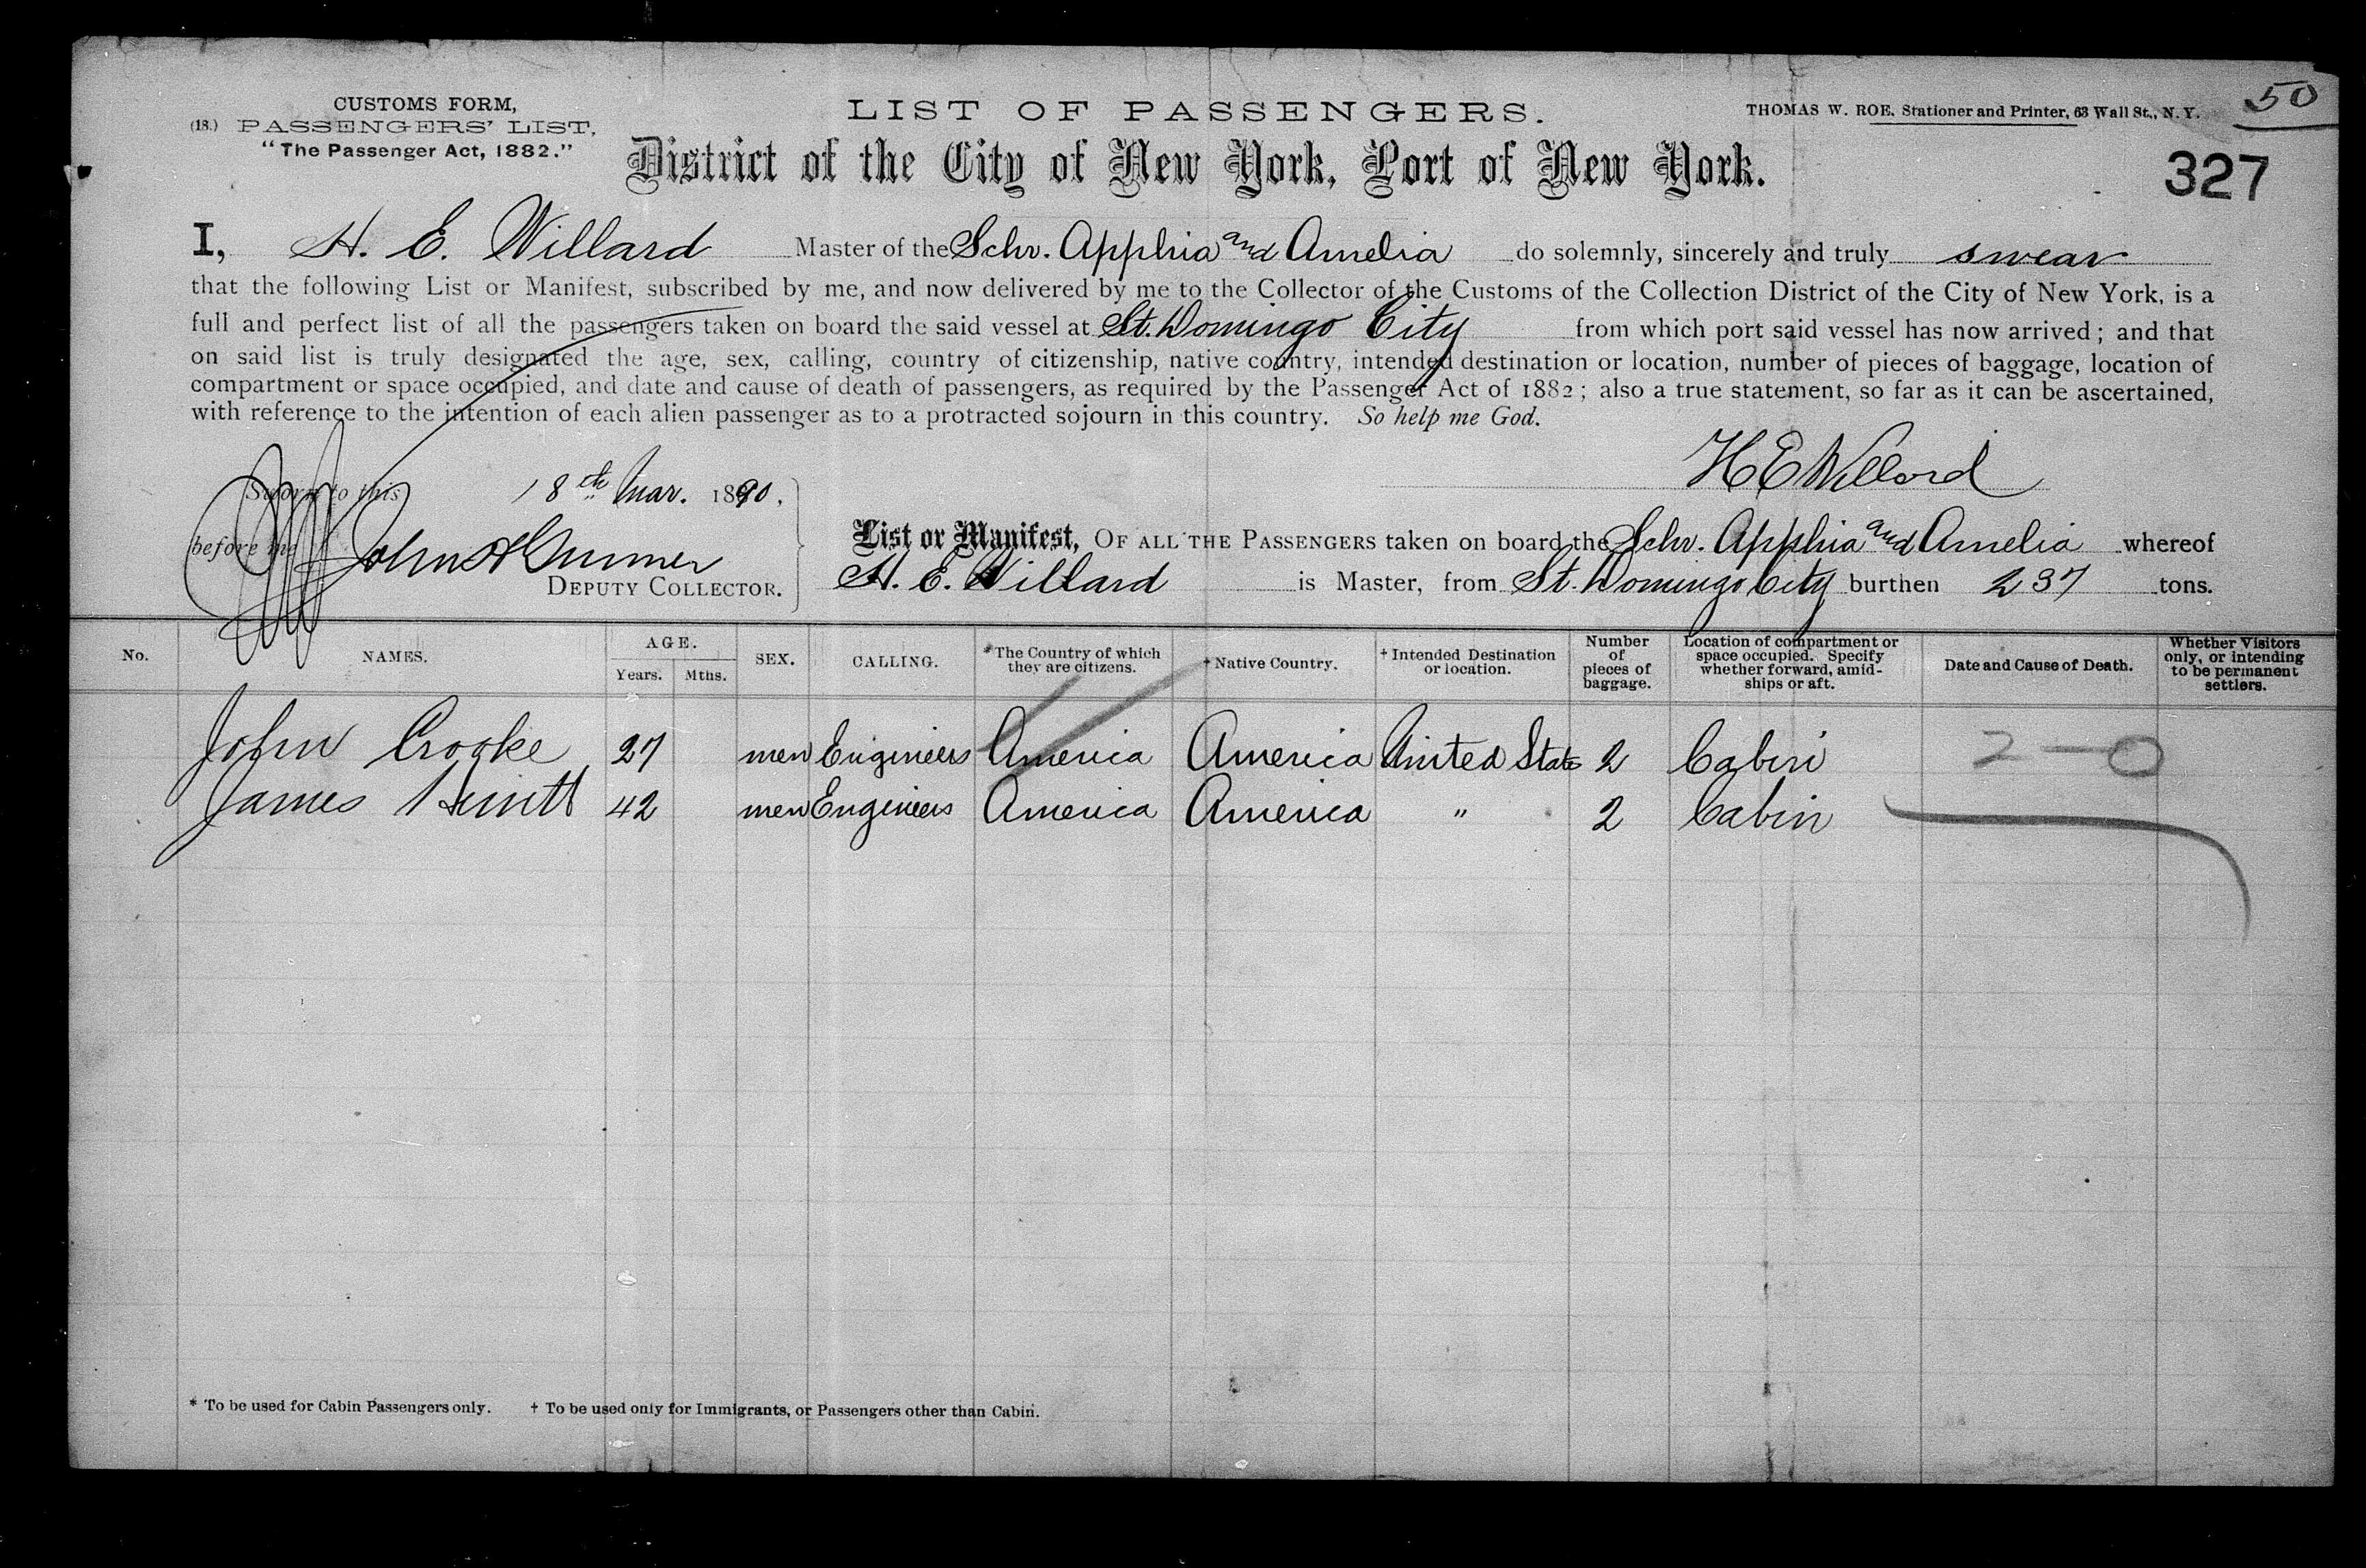 CUSTOMS FORM,
(18.) PASSENGERS' LIST.
"The Passenger Act, 1882."
LIST OF PASSENGERS.
THOMAS W. ROE, Stationer and Printer, 63 Wall St., N. Y.
50
District of the City of New York, Port of New York.
327
I, H. E. Willard Master of the Schr. Apphia and Amelia do solemnly, sincerely and truly swear
that the following List or Manifest, subscribed by me, and now delivered by me to the Collector of the Customs of the Collection District of the City of New York, is a
full and perfect list of all the passengers taken on board the said vessel at St. Domingo City from which port said vessel has now arrived; and that
on said list is truly designated the age, sex, calling, country of citizenship, native country, intended destination or location, number of pieces of baggage, location of
compartment or space occupied, and date and cause of death of passengers, as required by the Passenger Act of 1882; also a true statement, so far as it can be ascertained,
with reference to the intention of each alien passenger as to a protracted sojourn in this country. So help me God.
H E Willard
Sworn to this 18th Mar. 1890.
before me John
DEPUTY COLLECTOR.
List or Manifest, OF ALL THE PASSENGERS taken on board the Schr. Apphia and Amelia whereof
H. E. Willard is Master, from St. Domingo City burthen 237 tons.
No. NAMES. AGE. Years. Mths. SEX. CALLING. * The Country of which they are citizens. † Native Country. † Intended Destination or location. Number of pieces of baggage. Location of compartment or space occupied. Specify whether forward, amidships or aft. Date and Cause of Death. Whether Visitors only, or intending to be permanent settlers.
John Crooke 27 men Engineers America America United State 2 Cabin 2—0
James 42 men Engineers America America " 2 Cabin
* To be used for Cabin Passengers only. † To be used only for Immigrants, or Passengers other than Cabin.